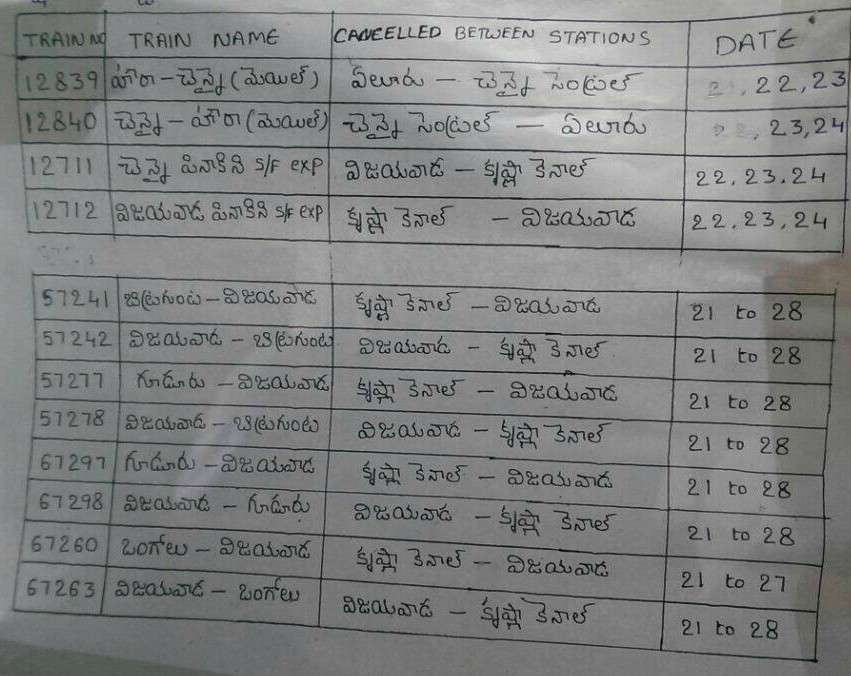 TRAIN NO TRAIN NAME CANCELLED BETWEEN STATIONS DATE
12839 హౌరా - చెన్నై (మెయిల్) ఏలూరు - చెన్నై సెంట్రల్ 22, 23
12840 చెన్నై - హౌరా (మెయిల్) చెన్నై సెంట్రల్ - ఏలూరు 23, 24
12711 చెన్నై పినాకిని S/F exp విజయవాడ - కృష్ణా కెనాల్ 22, 23. 24
12712 విజయవాడ పినాకిని S/F exp కృష్ణా కెనాల్ - విజయవాడ 22, 23, 24
57241 బిట్రగుంట - విజయవాడ కృష్ణా కెనాల్ - విజయవాడ 21 to 28
57242 విజయవాడ - బిట్రగుంట విజయవాడ - కృష్ణా కెనాల్ 21 to 28
57277 గూడూరు - విజయవాడ కృష్ణా కెనాల్ - విజయవాడ 21 to 28
57278 విజయవాడ - బిట్రగుంట విజయవాడ - కృష్ణా కెనాల్ 21 to 28
67297 గూడూరు - విజయవాడ కృష్ణా కెనాల్ - విజయవాడ 21 to 28
67298 విజయవాడ - గూడూరు విజయవాడ - కృష్ణా కెనాల్ 21 to 28
67260 ఒంగోలు - విజయవాడ కృష్ణా కెనాల్ - విజయవాడ 21 to 27
67263 విజయవాడ - ఒంగోలు విజయవాడ - కృష్ణా కెనాల్ 21 to 28